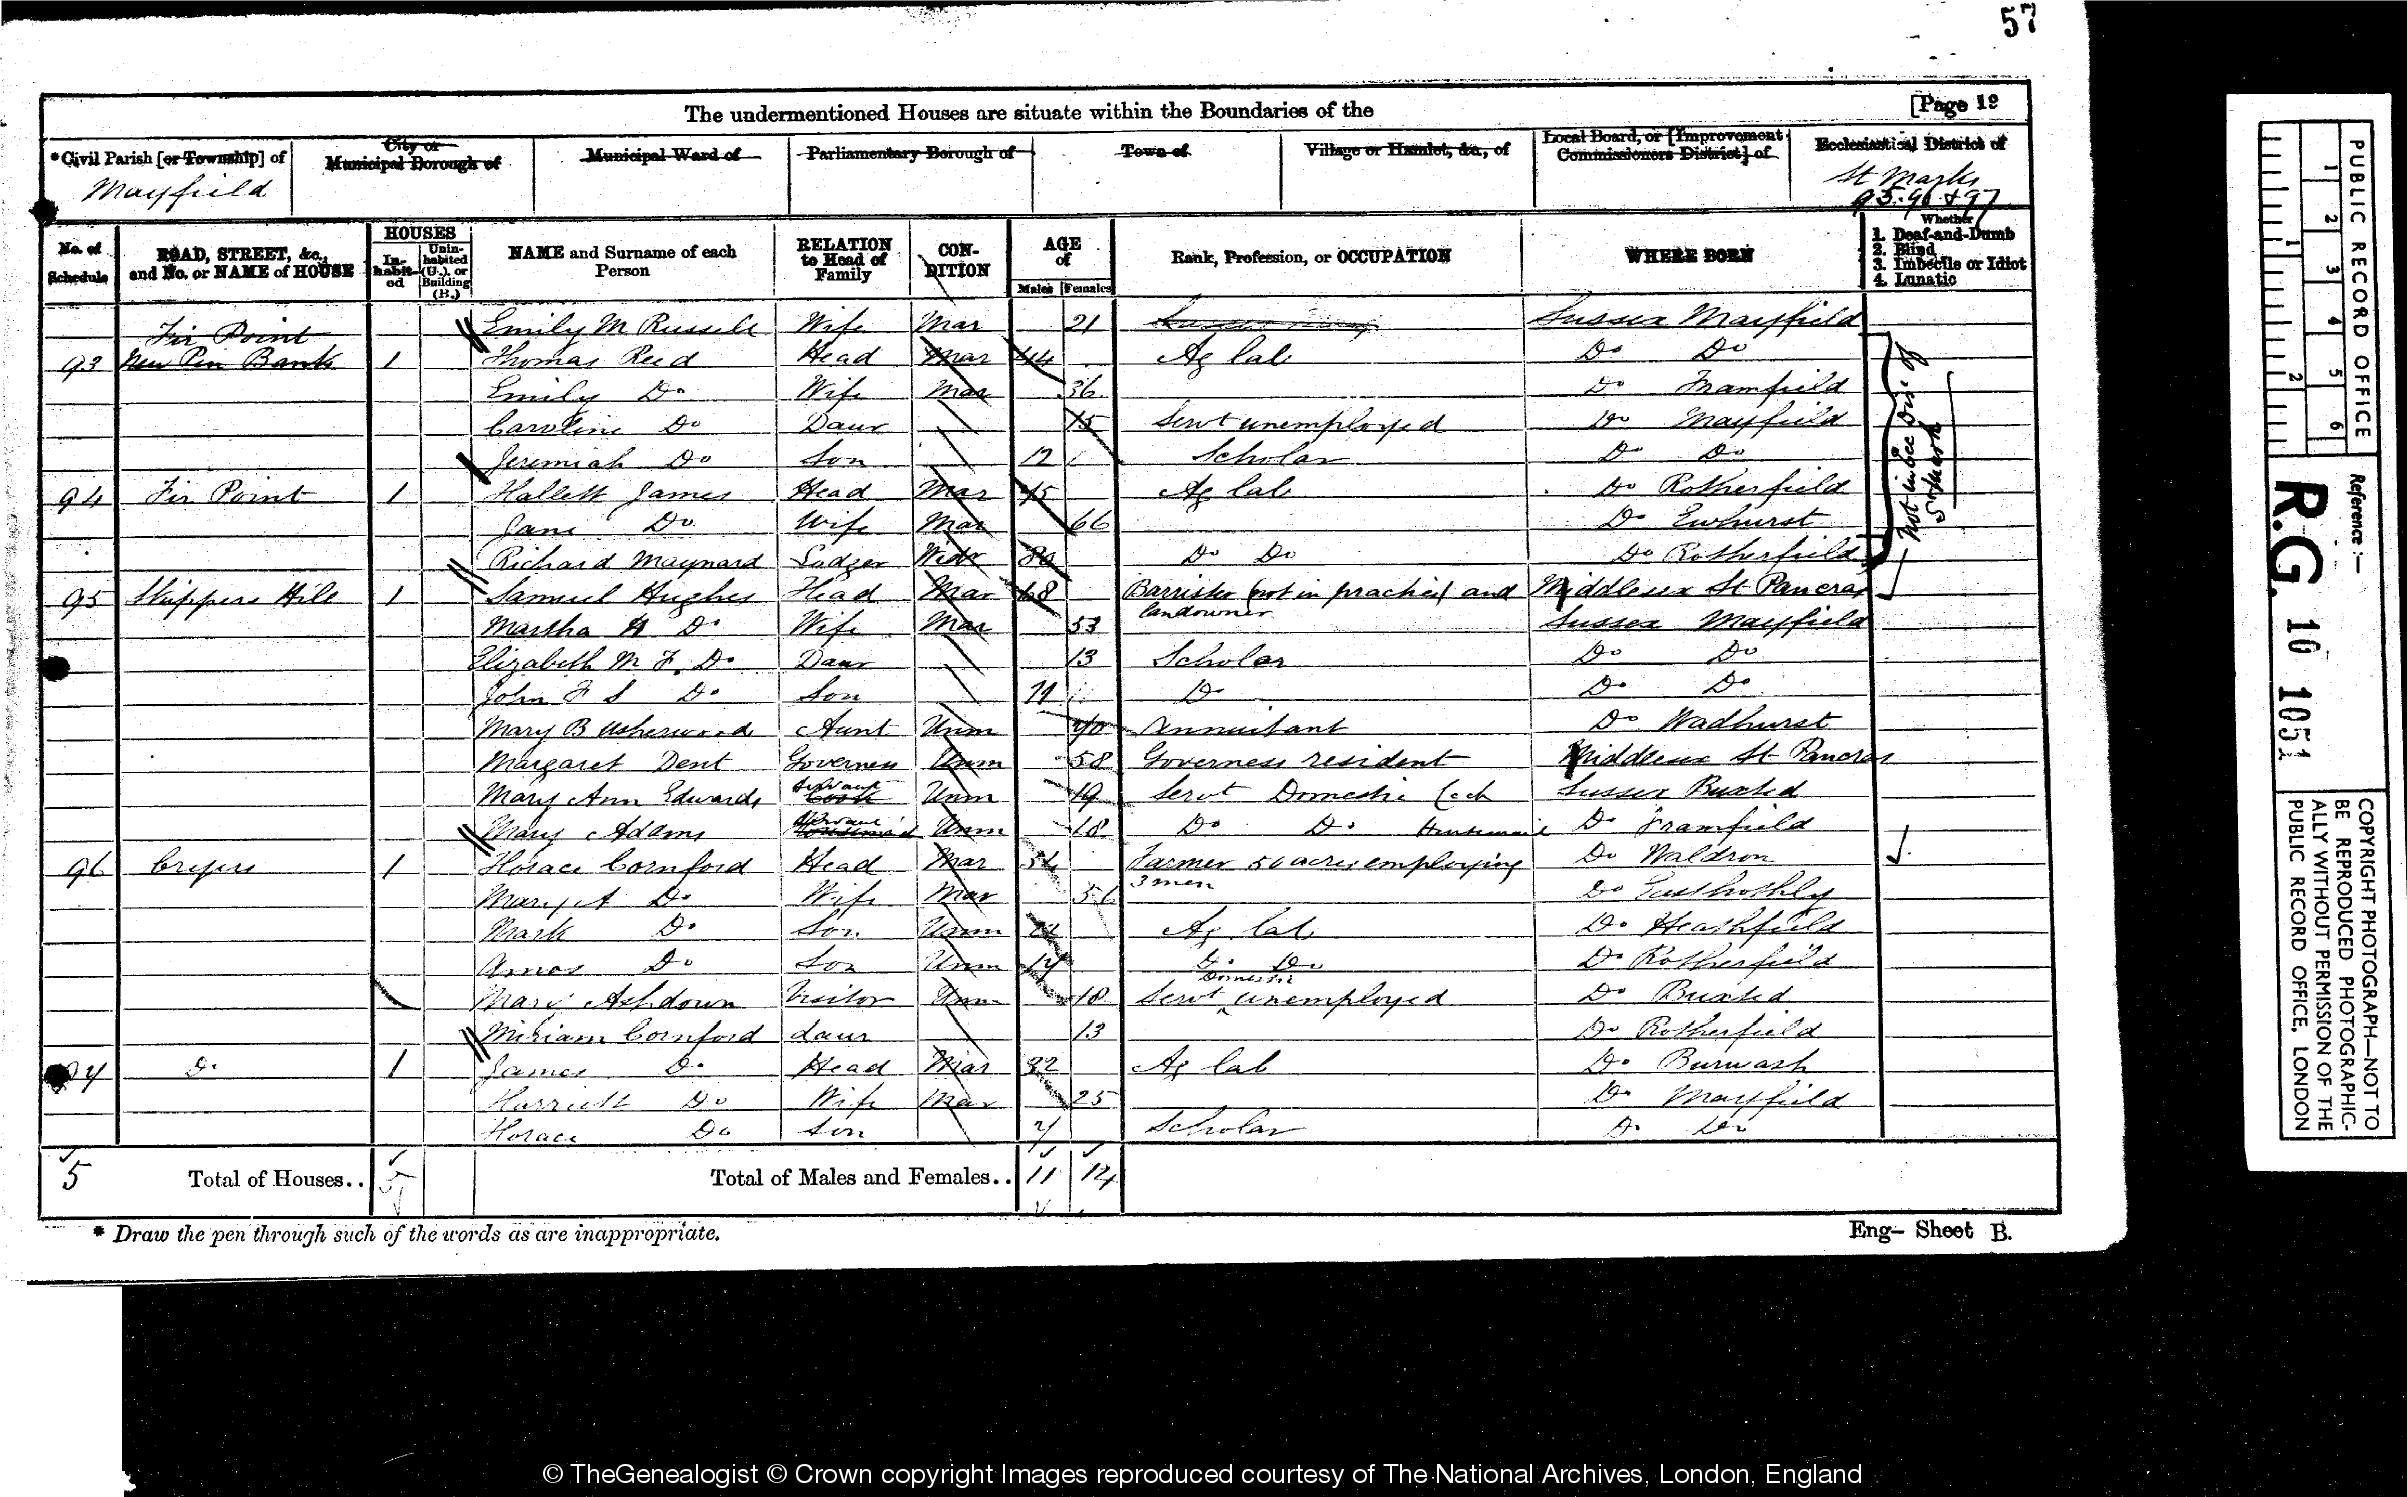 57
The undermentioned Houses are situate within the Boundaries of the
[Page 19
*Civil Parish [or Township] of
City or Municipal Borough of
Municipal Ward of
Parliamentary Borough of
Town of
Village or Hamlet, &c., of
Local Board, or [Improvement Commissioners District] of
Ecclesiastical District of
Mayfield
St Marks
95.96 & 97
No. of Schedule
ROAD, STREET, &c., and No. or NAME of HOUSE
HOUSES
In-habit-ed
Unin-habited (U.), or Building (B.)
NAME and Surname of each Person
RELATION to Head of Family
CON-DITION
AGE of
Males
Females
Rank, Profession, or OCCUPATION
WHERE BORN
Whether
1. Deaf-and-Dumb
2. Blind
3. Imbecile or Idiot
4. Lunatic
Fir Point Emily M Russell Wife Mar 21 Sussex Mayfield
93 New Pin Bank 1 Thomas Reed Head Mar 44 Ag lab Do Do
Emily Do Wife Mar 36 Do Framfield
Caroline Do Daur 15 Servt unemployed Do Mayfield
Jeremiah Do Son 12 Scholar Do Do
94 Fir Point 1 Hallett James Head Mar Ag lab Do Rotherfield
Jane Do Wife Mar 66 Do Ewhurst
Richard Maynard Lodger Widr 80 Do Do Do Rotherfield
95 Skippers Hill 1 Samuel Hughes Head Mar 68 Barrister (not in practice) and landowner Middlesex St Pancras
Martha H Do Wife Mar 53 Sussex Mayfield
Elizabeth M F Do Daur 13 Scholar Do Do
John F S Do Son 11 Do Do Do
Mary B Usherwood Aunt Unm Annuitant Do Wadhurst
Margaret Dent Governess Unm 58 Governess resident Middlesex St Pancras
Mary Ann Edwards Servant Cook Unm 19 Servt Domestic Cook Sussex Buxted
Mary Adams Servant Housemaid Unm 18 Do Do Housemaid Do Framfield
96 1 Horace Cornford Head Mar 54 Farmer 50 acres employing 3 men Do Waldron
Mary A Do Wife Mar 56 Do Easthothly
Mark Do Son Unm Ag lab Do Heathfield
Amos Do Son Unm 17 Do Do Do Rotherfield
Mary Ashdown Visitor Unm 18 Servt Domestic unemployed Do Buxted
Miriam Cornford daur 13 Do Rotherfield
97 Do 1 James Do Head Mar Ag lab Do Burwash
Harriett Do Wife Mar 25 Do Mayfield
Horace Do Son 7 Scholar Do Do
Not in
5
Total of Houses..
5
Total of Males and Females..
11
14
* Draw the pen through such of the words as are inappropriate.
Eng- Sheet B.
PUBLIC RECORD OFFICE
1 2 3 4 5 6
1 2
Reference:-
R.G. 10 1051
COPYRIGHT PHOTOGRAPH-NOT TO
BE REPRODUCED PHOTOGRAPHIC-
ALLY WITHOUT PERMISSION OF THE
PUBLIC RECORD OFFICE, LONDON
© TheGenealogist © Crown copyright Images reproduced courtesy of The National Archives, London, England